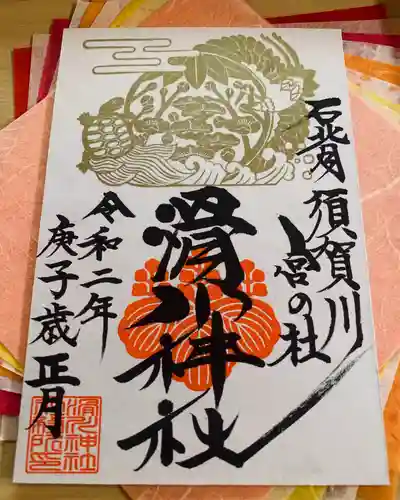 石背
須賀川
宮の杜
滑川神社
令和二年
庚子歳正月
滑川神社